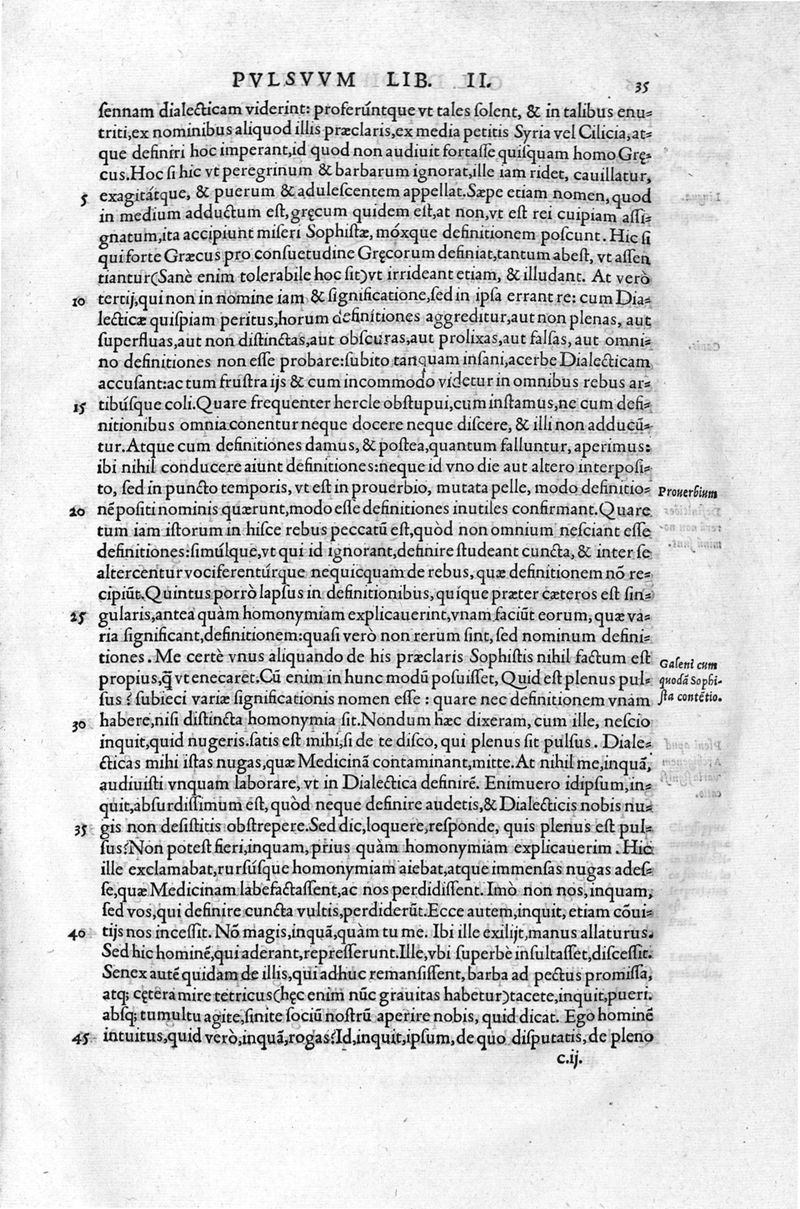 PVLSVVM LIB. II. 35
ſennam dialecticam viderint: proferúntque vt tales ſolent, & in talibus enu⸗
triti,ex nominibus aliquod illis præclaris,ex media petitis Syria vel Cilicia,at⸗
que definiri hoc imperant,id quod non audiuit fortaſſe quiſquam homo Grę⸗
cus.Hoc ſi hic vt peregrinum & barbarum ignorat,ille iam ridet, cauillatur,
5 exagitátque, & puerum & aduleſcentem appellat.Sæpe etiam nomen, quod
in medium adductum eſt,gręcum quidem eſt,at non,vt eſt rei cuipiam aſſi⸗
gnatum,ita accipiunt miſeri Sophiſtæ, móxque definitionem poſcunt. Hic ſi
qui forte Græcus pro conſuetudine Gręcorum definiat,tantum abeſt, vt aſſen
tiantur(Sanè enim tolerabile hoc ſit)vt irrideant etiam, & illudant. At verò
10 tertij,qui non in nomine iam & ſignificatione,ſed in ipſa errant re: cum Dia⸗
lecticæ quiſpiam peritus,horum definitiones aggreditur,aut non plenas, aut
ſuperfluas,aut non diſtinctas,aut obſcuras,aut prolixas,aut falſas, aut omni⸗
no definitiones non eſſe probare:ſubito tanquam inſani,acerbe Dialecticam
accuſant:ac tum fruſtra ijs & cum incommodo videtur in omnibus rebus ar⸗
15 tibúſque coli.Quare frequenter hercle obſtupui,cum inſtamus,ne cum defi⸗
nitionibus omnia conentur neque docere neque diſcere, & illi non adducũ⸗
tur.Atque cum definitiones damus, & poſtea,quantum falluntur, aperimus:
ibi nihil conducere aiunt definitiones:neque id vno die aut altero interpoſi⸗
to, ſed in puncto temporis, vt eſt in prouerbio, mutata pelle, modo definitio⸗
Prouerbium
20 nẽ poſiti nominis quærunt,modo eſſe definitiones inutiles confirmant.Quare
tum iam iſtorum in hiſce rebus peccatũ eſt,quòd non omnium neſciant eſſe
definitiones:ſimúlque,vt qui id ignorant,definire ſtudeant cuncta, & inter ſe
altercentur vociferentúrque nequicquam de rebus, quæ definitionem nõ re⸗
cipiũt.Quintus porrò lapſus in definitionibus, quíque præter cæteros eſt ſin⸗
25 gularis,antea quàm homonymiam explicauerint,vnam faciũt eorum, quæ va⸗
ria ſignificant,definitionem:quaſi verò non rerum ſint, ſed nominum defini⸗
tiones. Me certè vnus aliquando de his præclaris Sophiſtis nihil factum eſt
Galeni cum
propius,q̃ vt enecaret.Cũ enim in hunc modũ poſuiſſet, Quid eſt plenus pul⸗
quodã Sophi⸗
ſus? ſubieci variæ ſignificationis nomen eſſe : quare nec definitionem vnam
ſta contẽtio.
30 habere,niſi diſtincta homonymia ſit.Nondum hæc dixeram, cum ille, neſcio
inquit,quid nugeris.ſatis eſt mihi,ſi de te diſco, qui plenus ſit pulſus. Diale⸗
cticas mihi iſtas nugas,quæ Medicinã contaminant,mitte.At nihil me,inquã,
audiuiſti vnquam laborare, vt in Dialectica definirẽ. Enimuero idipſum,in⸗
quit,abſurdiſſimum eſt, quòd neque definire audetis,& Dialecticis nobis nu⸗
35 gis non deſiſtitis obſtrepere.Sed dic,loquere,reſponde, quis plenus eſt pul⸗
ſus?Non poteſt fieri,inquam,prius quàm homonymiam explicauerim. Hic
ille exclamabat,rurſúſque homonymiam aiebat,atque immenſas nugas adeſ⸗
ſe,quæ Medicinam labefactaſſent,ac nos perdidiſſent. Imò non nos, inquam,
ſed vos,qui definire cuncta vultis,perdiderũt.Ecce autem,inquit, etiam cõui⸗
40 tijs nos inceſſit. Nõ magis,inquã,quàm tu me. Ibi ille exilijt,manus allaturus.
Sed hic hominẽ,qui aderant,repreſſerunt.Ille,vbi ſuperbè inſultaſſet,diſceſſit.
Senex autẽ quidam de illis,qui adhuc remanſiſſent, barba ad pectus promiſſa,
atq; cętera mire tetricus(hęc enim nũc grauitas habetur)tacete,inquit,pueri.
abſq; tumultu agite,ſinite ſociũ noſtrũ aperire nobis, quid dicat. Ego hominẽ
45 intuitus,quid verò,inquã,rogas?Id,inquit,ipſum,de quo diſputatis,de pleno
c.ij.